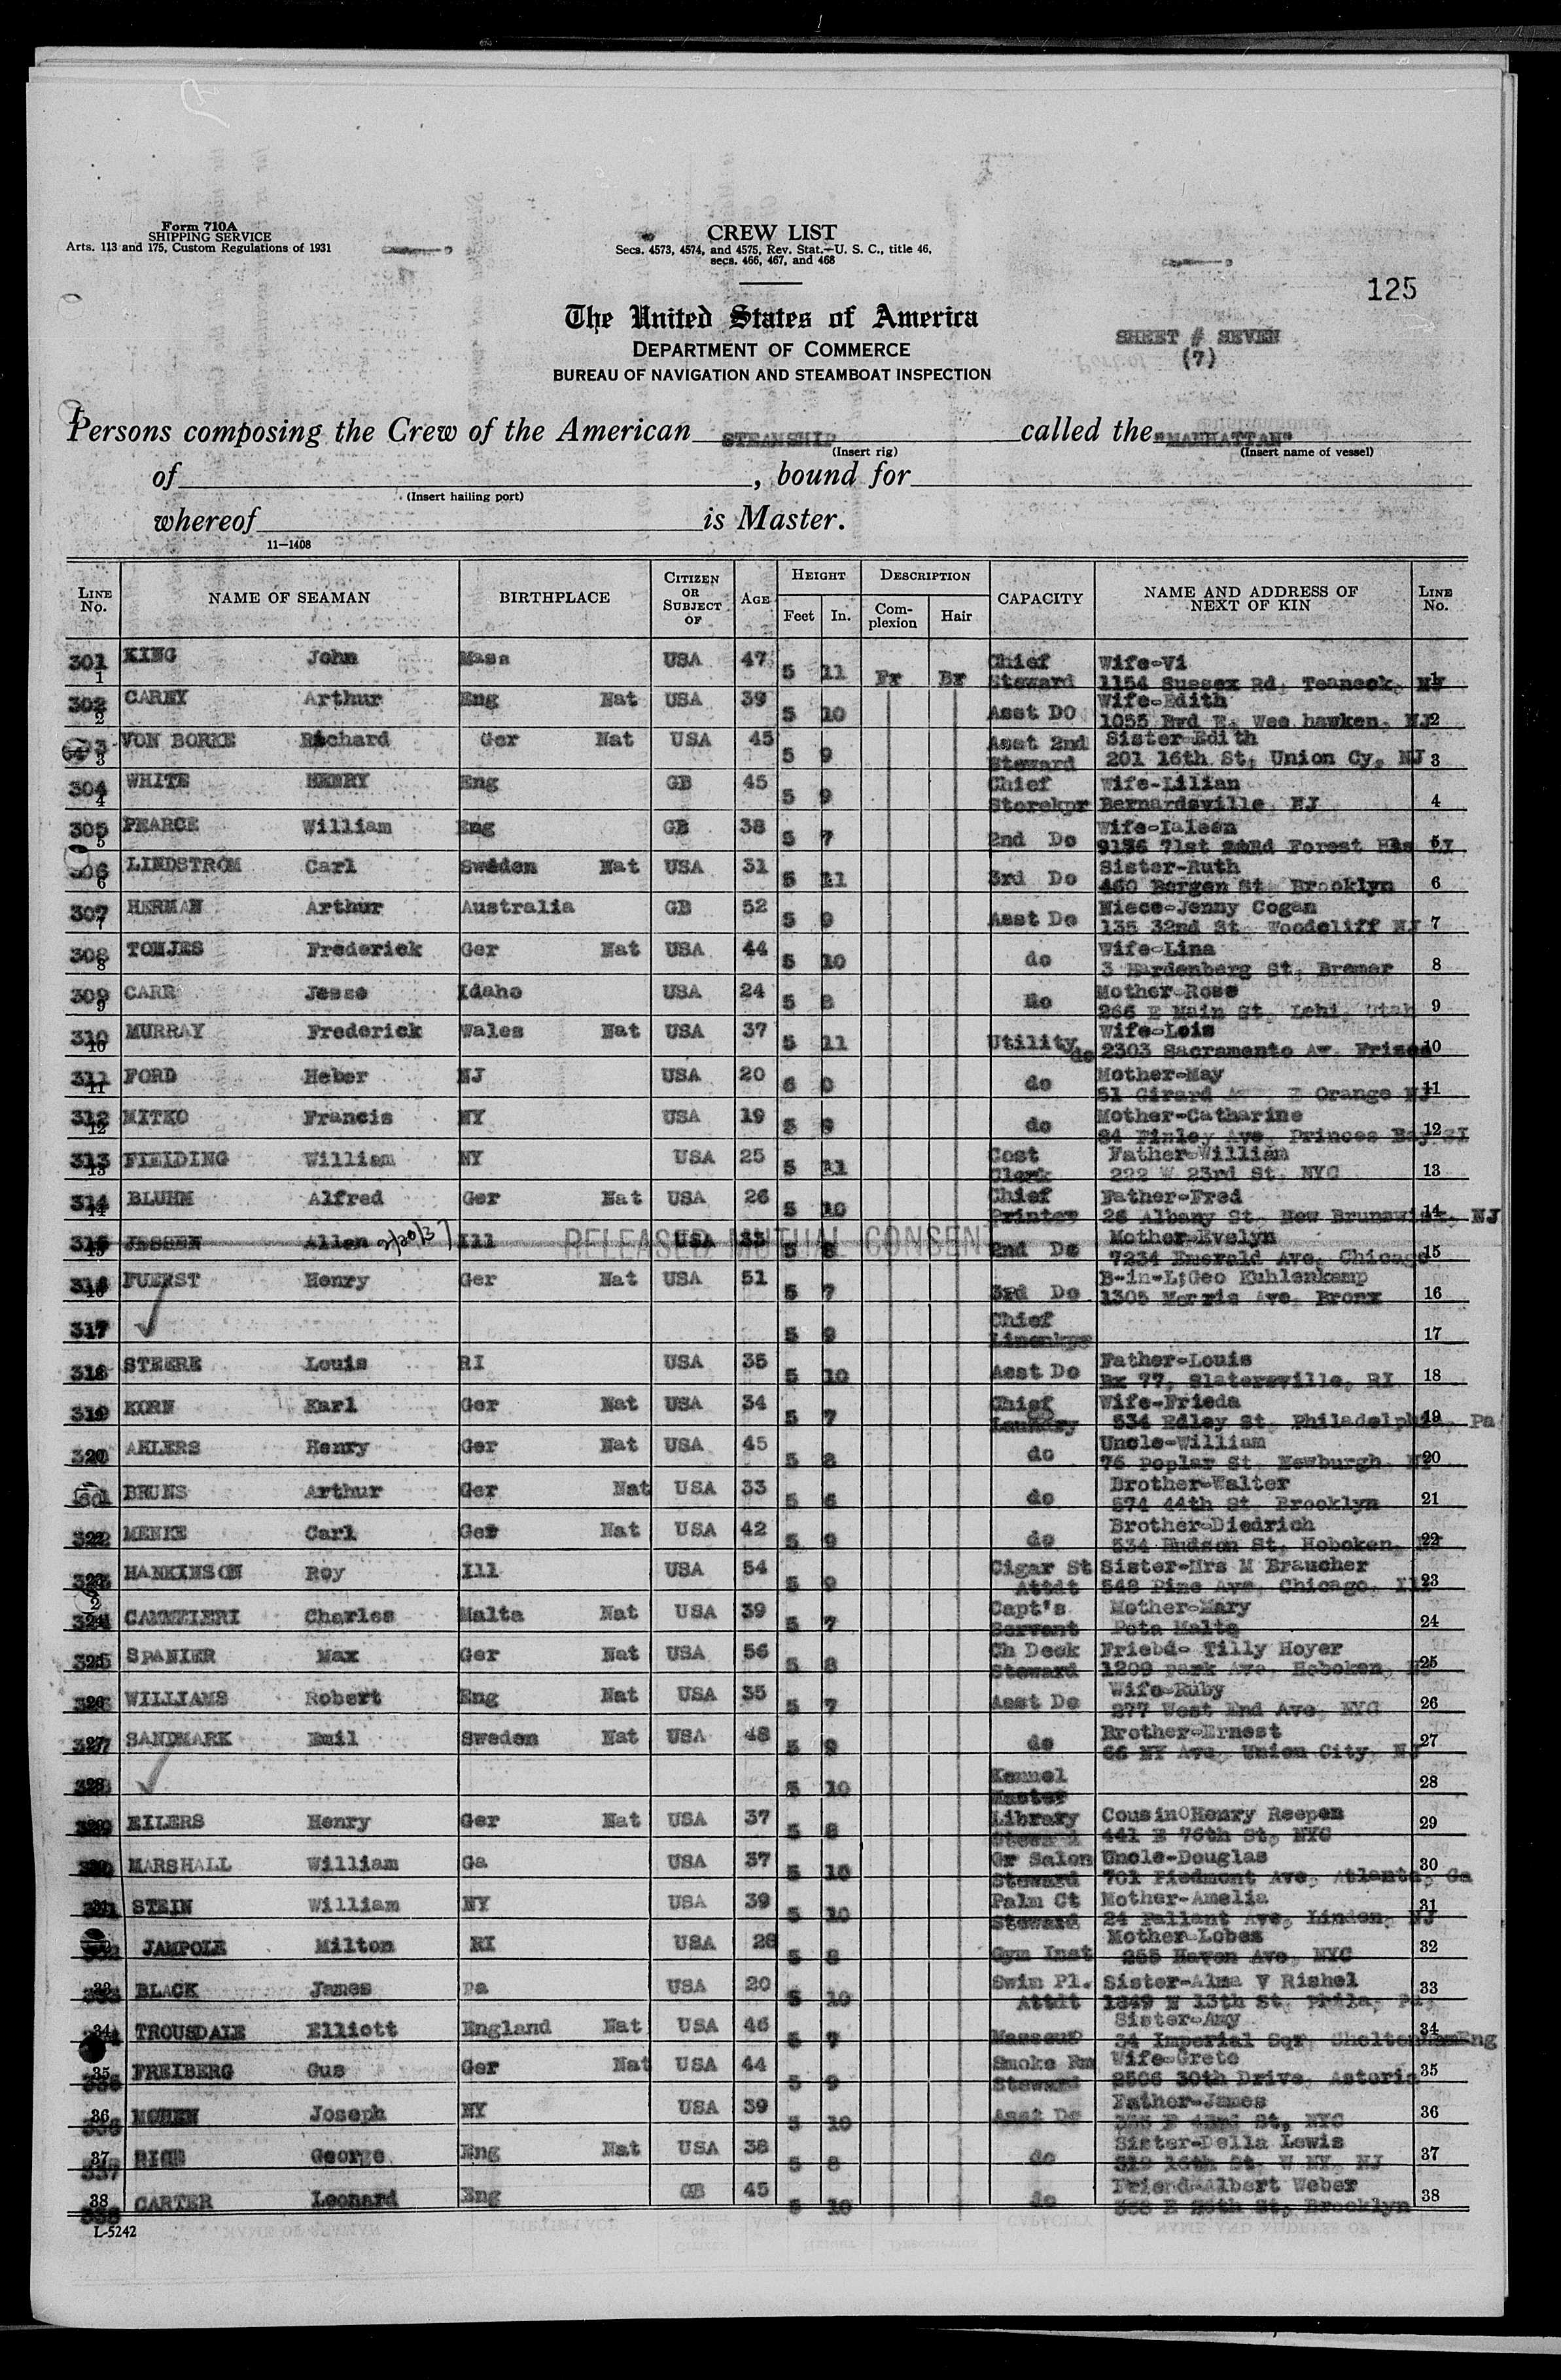 Form 710A
SHIPPING SERVICE
Arts. 113 and 175, Custom Regulations of 1931
CREW LIST
Secs. 4573, 4574, and 4575, Rev. Stat.—U. S. C., title 46,
secs. 466, 467, and 468
125
The United States of America
DEPARTMENT OF COMMERCE
BUREAU OF NAVIGATION AND STEAMBOAT INSPECTION
SHEET # SEVEN
(7)
Persons composing the Crew of the American STEAMSHIP called the "MANHATTAN"
(Insert rig) (Insert name of vessel)
of , bound for
(Insert hailing port)
whereof is Master.
11—1408
LINE No. NAME OF SEAMAN BIRTHPLACE CITIZEN OR SUBJECT OF AGE HEIGHT Feet In. DESCRIPTION Complexion Hair CAPACITY NAME AND ADDRESS OF NEXT OF KIN LINE No.
301 1 KING John Mass USA 47 5 11 Fr Br Chief Steward Wife-Vi 1154 Sussex Rd, Teaneck, NJ 1
302 2 CAREY Arthur Eng Nat USA 39 5 10 Asst DO Wife-Edith 1055 Bvd E, Wee hawken, NJ 2
3 VON BORKE Richard Ger Nat USA 45 5 9 Asst 2nd Steward Sister-Edith 201 16th St, Union Cy, NJ 3
304 4 WHITE HENRY Eng GB 45 5 9 Chief Storekpr Wife-Lilian Bernardsville, NJ 4
305 5 PEARCE William Eng GB 38 5 7 2nd Do 71st Forest 5
306 6 LINDSTROM Carl Sweden Nat USA 31 5 11 3rd Do Sister-Ruth 460 Bergen St Brooklyn 6
307 7 HERMAN Arthur Australia GB 52 5 9 Asst Do Niece-Jenny Cogan 135 32nd St Woodcliff NJ 7
308 8 TONJES Frederick Ger Nat USA 44 5 10 do Wife-Lina 3 Hardenberg St, Bremer 8
309 9 CARR Jesse Idaho USA 24 5 8 do Mother-Rose 266 E Main St, Lehi, Utah 9
310 10 MURRAY Frederick Wales Nat USA 37 5 11 Utility do Wife-Lois 2303 Sacramento Av. Frisco 10
311 11 FORD Heber NJ USA 20 6 0 do Mother-May 51 Girard E Orange NJ 11
312 12 MITKO Francis NY USA 19 5 9 do Mother-Catharine 84 Finley Ave, Princes Bay SI 12
313 13 FIELDING William NY USA 25 5 11 Cost Clerk Father-William 222 W 23rd St, NYC 13
314 14 BLUHM Alfred Ger Nat USA 26 5 10 Chief Printer Father-Fred 26 Albany St New Brunswick, NJ 14
315 15 JESSEN Allen 2/20/37 Ill RELEASED MUTUAL CONSENT USA 33 5 8 2nd Do Mother-Evelyn 7234 Emerald Ave, Chicago 15
316 16 FUERST Henry Ger Nat USA 51 5 7 3rd Do B-in-L;Geo Kuhlenkamp 1305 Morris Ave, Bronx 16
317 5 9 Chief Linenkpr 17
318 STEERE Louis RI USA 35 5 10 Asst Do Father-Louis Bx 77, Slatersville, RI 18
319 KORN Karl Ger Nat USA 34 5 7 Chief Laundry Wife-Frieda 534 Edley St Philadelphia, Pa 19
320 AHLERS Henry Ger Nat USA 45 5 8 do Uncle-William 76 Poplar St Newburgh NY 20
BRUNS Arthur Ger Nat USA 33 5 6 do Brother-Walter 574 44th St Brooklyn 21
322 MENKE Carl Ger Nat USA 42 5 9 do Brother-Diedrich 534 Hudson St, Hoboken, NJ 22
323 HANKINSON Roy Ill USA 54 5 9 Cigar St Attdt Sister-Mrs M Braucher 548 Pine Ave, Chicago, Ill 23
324 CAMMEIERI Charles Malta Nat USA 39 5 7 Capt's Servant Mother-Mary Peta Malta 24
325 SPANIER Max Ger Nat USA 56 5 8 Ch Deck Steward Friebd- Tilly Hoyer 1209 Park Ave, Hoboken, NJ 25
326 WILLIAMS Robert Eng Nat USA 35 5 7 Asst Do Wife-Ruby 277 West End Ave, NYC 26
327 SANDMARK Emil Sweden Nat USA 48 5 9 do Brother-Ernest 66 NY Ave, Union City, NJ 27
328 5 10 Kennel Master 28
329 EILERS Henry Ger Nat USA 37 5 8 Library Steward Cousin0Henry Reepen 441 E 76th St, NYC 29
330 MARSHALL William Ga USA 37 5 10 Gr Salon Steward Uncle-Douglas 701 Piedmont Ave, Atlanta, Ga 30
331 STEIN William NY USA 39 5 10 Palm Ct Steward Mother-Amelia 24 Pallant Ave, Linden, NJ 31
JAMPOLE Milton RI USA 28 5 8 Gym Inst Mother-Lobes 255 Haven Ave, NYC 32
33 BLACK James Pa USA 20 5 10 Swim Pl. Attdt Sister-Alma V Rishel 1849 N 13th St, Phila, Pa, 33
34 TROUSDALE Elliott England Nat USA 46 5 7 Masseur Sister-Amy 34 Imperial Sqr Cheltenham Eng 34
35 FREIBERG Gus Ger Nat USA 44 5 9 Smoke Rm Steward Wife-Grete 2506 30th Drive, Astoria 35
36 Joseph NY USA 39 5 10 Asst Do Father-James E 43rd St, NYC 36
37 RICE George Eng Nat USA 38 5 8 do Sister-Della Lewis 16th St, W NY, NJ 37
38 CARTER Leonard Eng GB 45 5 10 do Friend-Albert Weber St, Brooklyn 38
L-5242